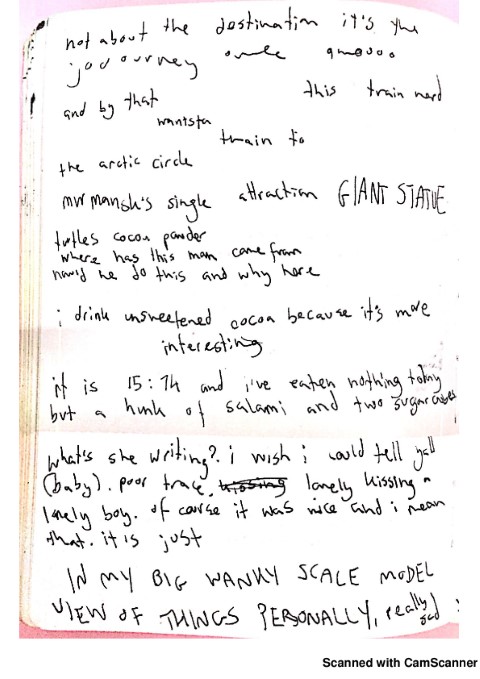 not about the destination it's the
journey
and by that this train nerd
wantsta
train to
the arctic circle
mr mansk's single attraction GIANT STATUE
turtles cocoa powder
where has this man come from
how'd he do this and why here
i drink unsweetened cocoa because it's more
interesting
it is 15:74 and i've eaten nothing today
but a hunk of salami and two sugarcubes
what's she writing? i wish i could tell yall
(baby). poor trace. kissing lonely kissing a
lonely boy. of course it was nice and i mean
that. it is just
IN MY BIG WANKY SCALE MODEL
VIEW OF THINGS PERSONALLY, really
Scanned with CamScanner